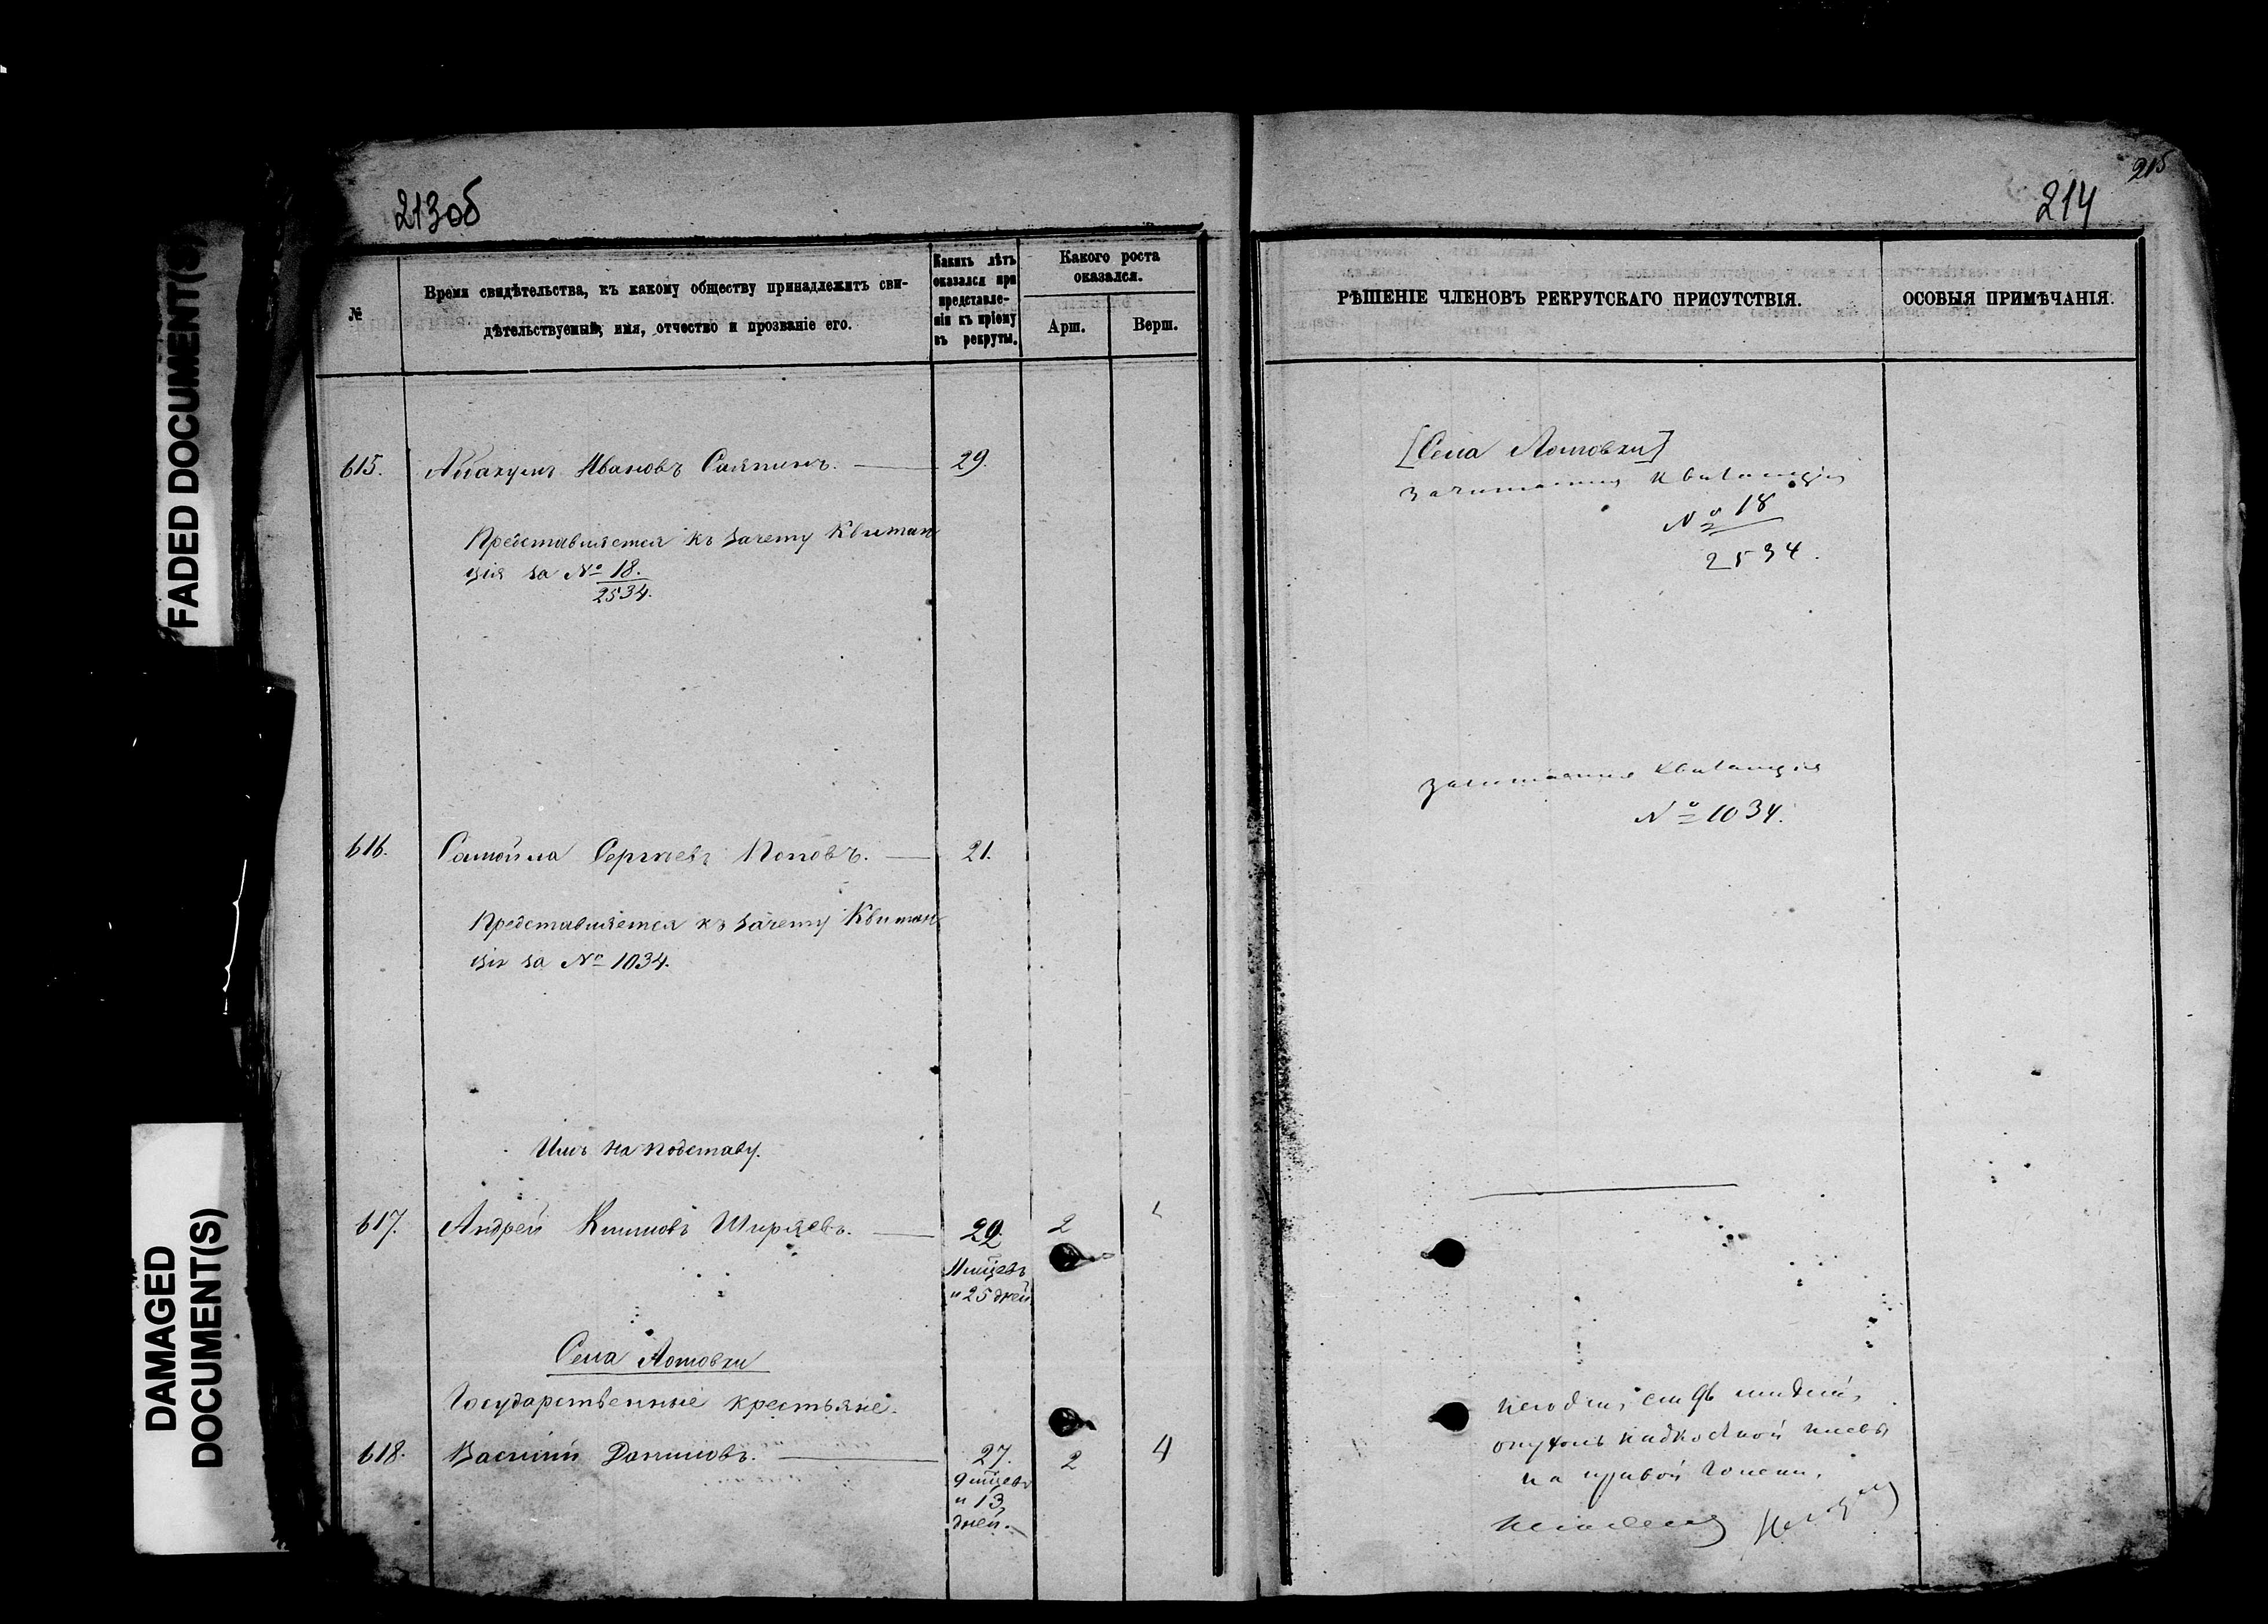 213об
№
Время свидѣтельства, къ какому обществу принадлежитъ сви-
дѣтельствуемый, имя, отчество и прозваніе его.
Какихъ лѣтъ
оказался при
представле-
ніи къ пріему
въ рекруты.
Какого роста
оказался.
Арш.
Верш.
615. Абакумъ Ивановъ Саяпинъ. 29.
Представляется къ зачету Квитан
ція за № 18.
2534.
616. Самойла Сергѣевъ Поповъ. 21.
Представляется къ зачету Квитан
ція за № 1034.
Имъ на подставу.
617. Андрей Климовъ Ширяевъ. 29. 2
и 25 дней
Села Лотовки
Государственные крестьяне.
618. Василій Даниловъ. 27. 2 4
9 мцевъ
и 13
дней.
FADED DOCUMENT(S)
DAMAGED
DOCUMENT(S)
215
214
РѢШЕНІЕ ЧЛЕНОВЪ РЕКРУТСКАГО ПРИСУТСТВІЯ.
ОСОБЫЯ ПРИМѢЧАНІЯ.
[Села Лотовки]
зачитанія квитанція
№ 18
2534.
зачитанія квитанція
№ 1034.
опухоль надкостной плевы
на правой голени.